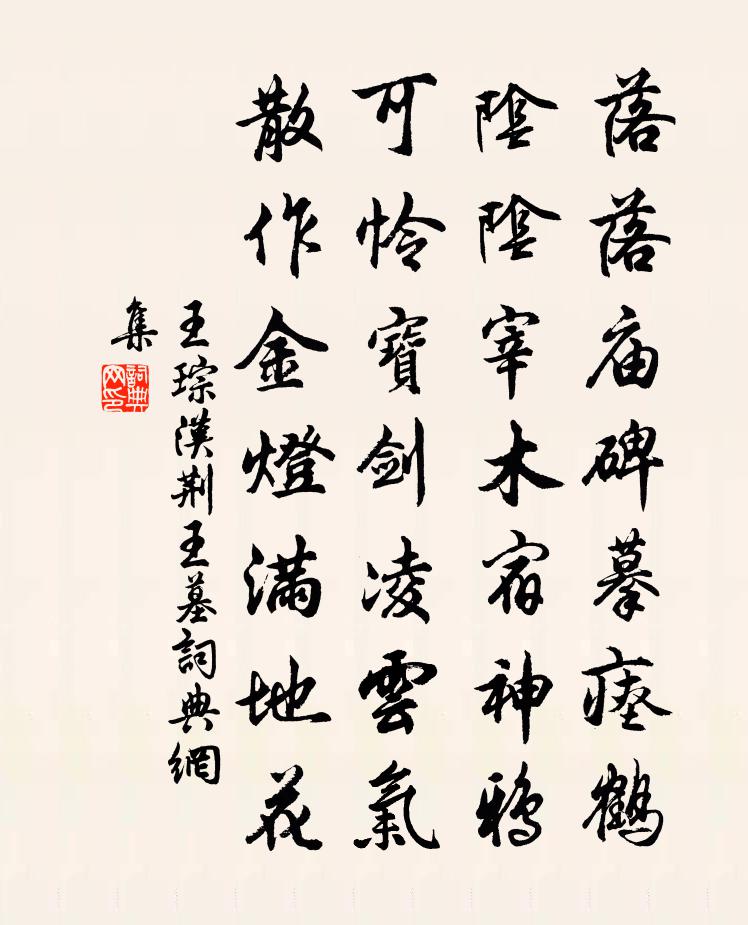 落落庙碑摹瘞鶴
陰陰宰木宿神鴉
可怜寶劍凌雲氣
散作金燈滿地花
王琮漢荆王墓詞典網
集
詞典
网印